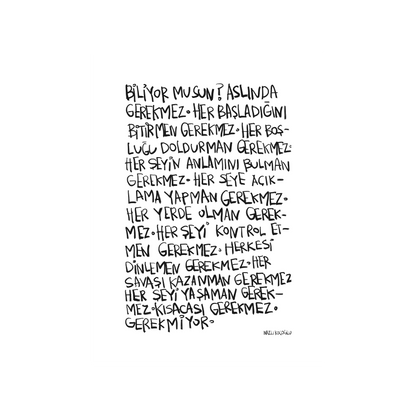 BİLİYOR MUSUN? ASLINDA
GEREKMEZ. HER BAŞLADIĞINI
BİTİRMEN GEREKMEZ. HER BOŞ-
LUĞU DOLDURMAN GEREKMEZ.
HER ŞEYİN ANLAMINI BULMAN
GEREKMEZ. HER ŞEYE AÇIK-
LAMA YAPMAN GEREKMEZ.
HER YERDE OLMAN GEREK-
MEZ. HER ŞEYİ KONTROL ET-
MEN GEREKMEZ. HERKESİ
DİNLEMEN GEREKMEZ. HER
SAVAŞI KAZANMAN GEREKMEZ
HER ŞEYİ YAŞAMAN GEREK-
MEZ. KISACASI GEREKMEZ.
GEREKMİYOR.